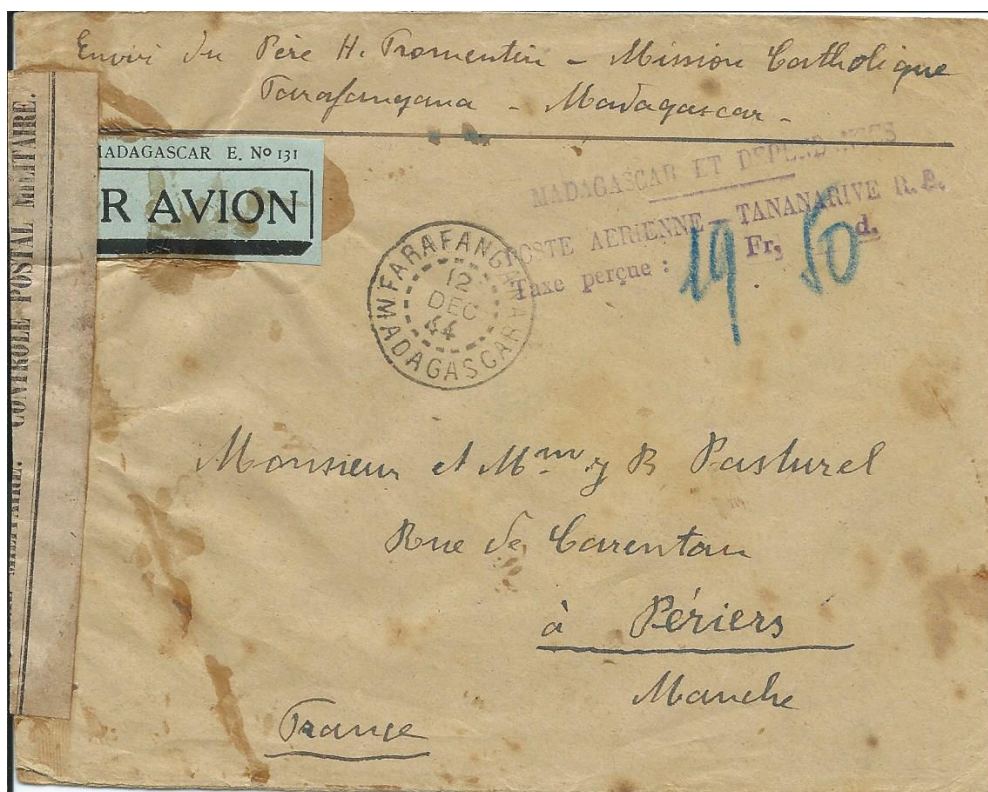 Envoi du Père H. Fromentin – Mission Catholique
Farafangana – Madagascar –
CONTROLE POSTAL MILITAIRE.
MILITAIRE.
MADAGASCAR E. No 131
R AVION
MADAGASCAR ET DEPENDANCES
POSTE AERIENNE - TANANARIVE R.P.
Taxe perçue : 19 Fr, 50 d.
FARAFANGANA
12
DEC
44
MADAGASCAR
Monsieur et Mme J B Pasturel
Rue de Carentan
à Périers
Manche
France